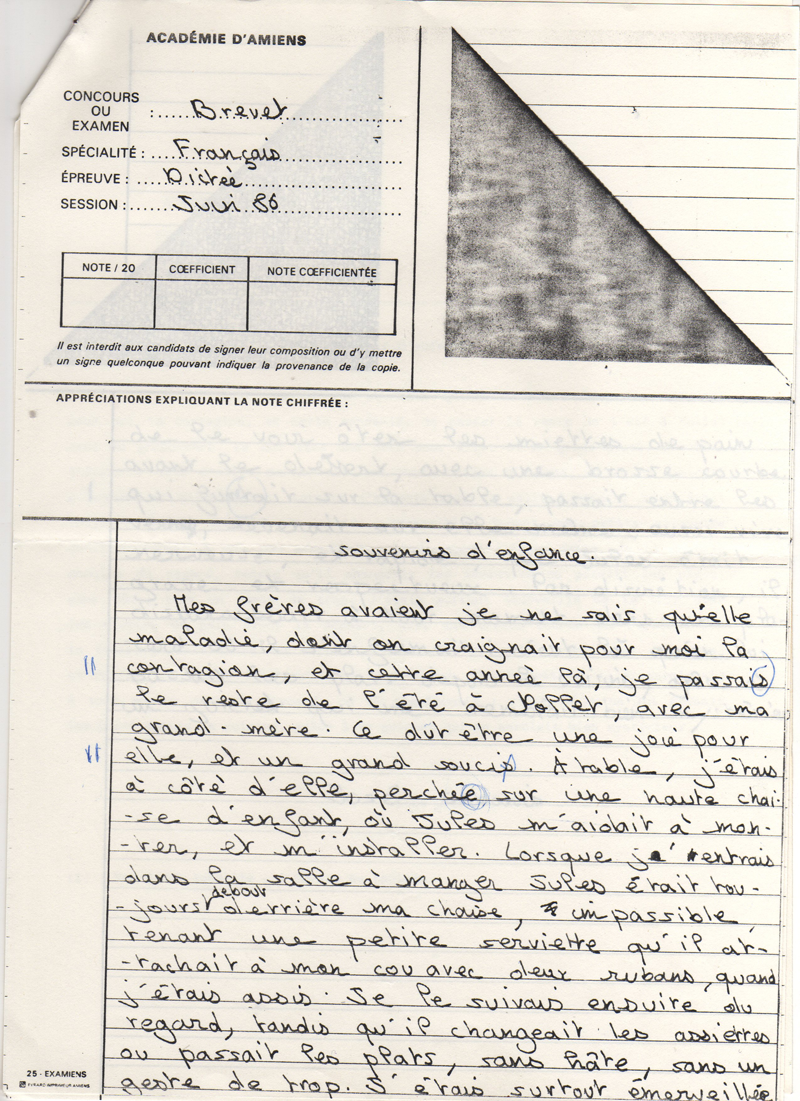 ACADÉMIE D'AMIENS
CONCOURS
OU
EXAMEN : Brevet
SPÉCIALITÉ : Français
ÉPREUVE : Dictée
SESSION : Juin 86
NOTE / 20 COEFFICIENT NOTE CŒFFICIENTÉE
Il est interdit aux candidats de signer leur composition ou d'y mettre
un signe quelconque pouvant indiquer la provenance de la copie.
APPRÉCIATIONS EXPLIQUANT LA NOTE CHIFFRÉE :
Souvenirs d'enfance.
Mes frères avaient je ne sais qu'elle
maladie, dont on craignait pour moi la
contagion, et cette année là, je passais
le reste de l'été à Chollet, avec ma
grand-mère. Ce dût être une joie pour
elle, et un grand soucis. À table, j'étais
à côté d'elle, perchée sur une haute chai-
-se d'enfant, où Jules m'aidait à mon-
-ter, et m'installer. Lorsque j'entrais
dans la salle à manger Jules était tou-
-jours debout derrière ma chaise, impassible,
tenant une petite serviette qu'il at-
-tachait à mon cou avec deux rubans, quand
j'étais assis. Je le suivais ensuite du
regard, tandis qu'il changeait les assiettes
ou passait les plats, sans hâte, sans un
geste de trop. J'étais surtout émerveillée
25 - EXAMIENS